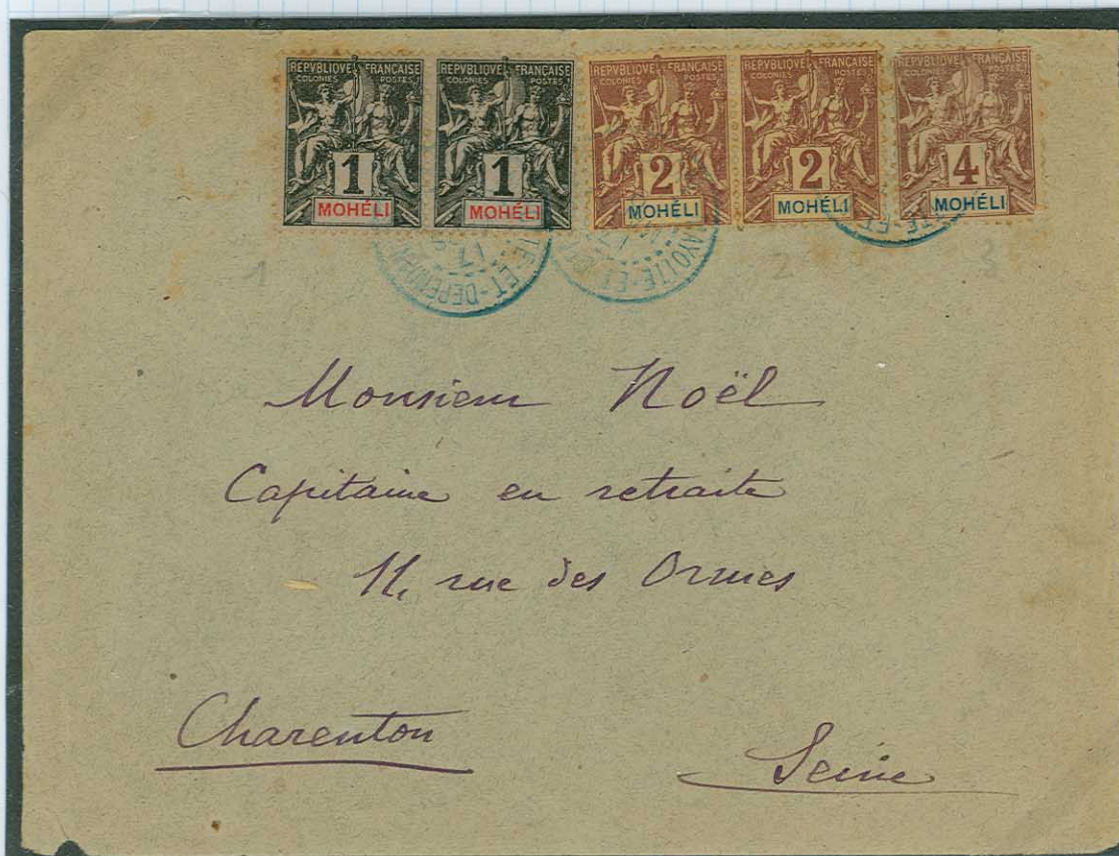 REPVBLIQVE FRANÇAISE
COLONIES POSTES
1
MOHÉLI
REPVBLIQVE FRANÇAISE
COLONIES POSTES
1
MOHÉLI
REPVBLIQVE FRANÇAISE
COLONIES POSTES
2
MOHÉLI
REPVBLIQVE FRANÇAISE
COLONIES POSTES
2
MOHÉLI
REPVBLIQVE FRANÇAISE
COLONIES POSTES
4
MOHÉLI
1
2
3
Monsieur Noël
Capitaine en retraite
11, rue des Ormes
Charenton
Seine